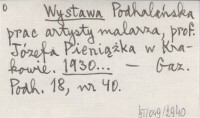 Wystawa Podhalańska
prac artysty malarza, prof.
Józefa Pieniążka w Kra-
kowie. 1930... — Gaz.
Podh. 18, nr 40.